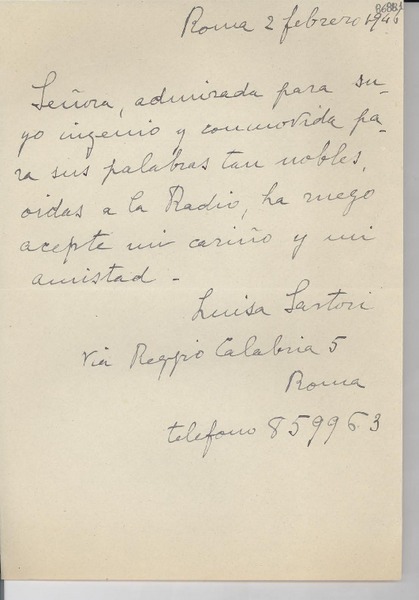 Roma 2 febrero 1946
Señora, admirada para su-
yo ingenio y conmovida pa-
ra sus palabras tan nobles,
oidas a la Radio, ha ruego
acepte mi cariño y mi
amistad -
Luisa Sartori
Via Reggio Calabria 5
Roma
telefono 859963